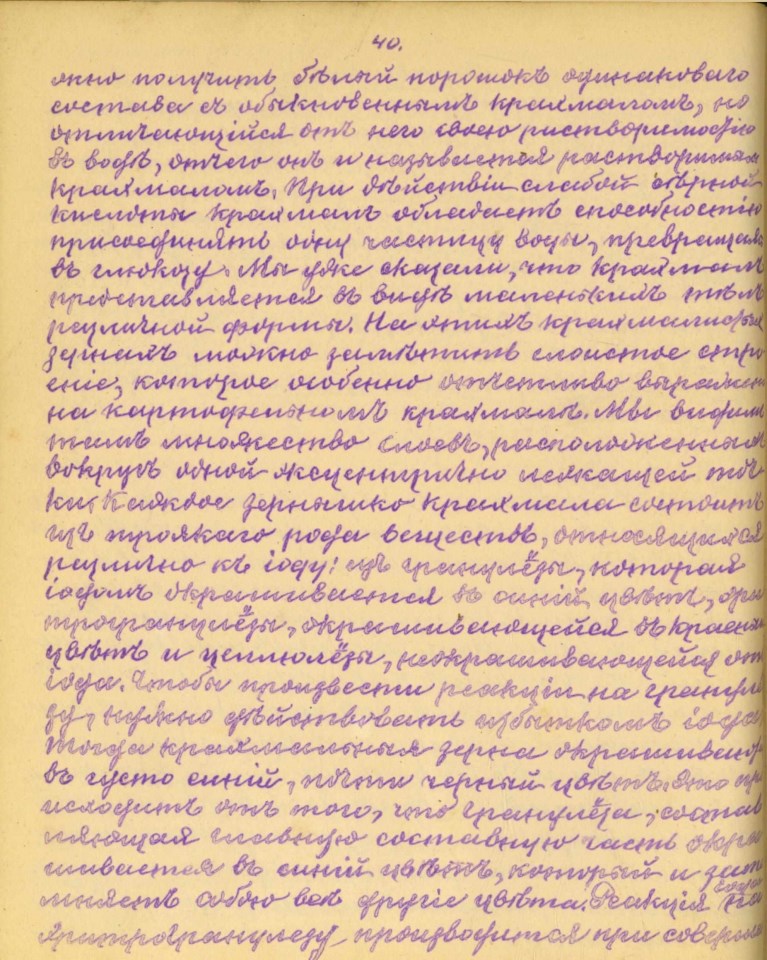 40.
ожно получить бѣлый порошокъ одинаковаго
состава съ обыкновеннымъ крахмаломъ, но
отличающійся отъ него своею растворимостію
въ водѣ, отчего онъ и называется растворимым
крахмаломъ. При дѣйствіи слабой сѣрной
кислоты крахмалъ обладаетъ способностію
присоединять одну частицу воды, превращаясь
въ глюкозу. Мы уже сказали, что крахмалъ
представляется въ видѣ маленькихъ тѣлъ
различной формы. На этихъ крахмалистых
зернахъ можно замѣтить слоистое стро
еніе, которое особенно отчетливо выражено
на картофельномъ крахмалѣ. Мы видимъ
тамъ множество слоевъ, расположенныхъ
вокругъ одной эксцентрично лежащей точ
ки. Каждое зернышко крахмала состоитъ
изъ троякаго рода веществъ, относящихся
различно къ іоду: изъ гранулёзы, которая
іодомъ окрашивается въ синій цвѣтъ, эри
трогранулёзы, окрашивающейся въ красный
цвѣтъ и целлюлёзы, неокрашивающейся отъ
іода. Чтобы произвести реакціи на гранулё
зу, нужно дѣйствовать избыткомъ іода
Тогда крахмальныя зерна окрашиваются
въ густо синій, почти черный цвѣтъ. Это пр
исходитъ отъ того, что гранулёза, состав
ляющая главную составную часть окра
шивается въ синій цвѣтъ, который и зат
мняетъ собою всѣ другіе цвѣта. Реакція на
эритрогранулезу производится при соверше